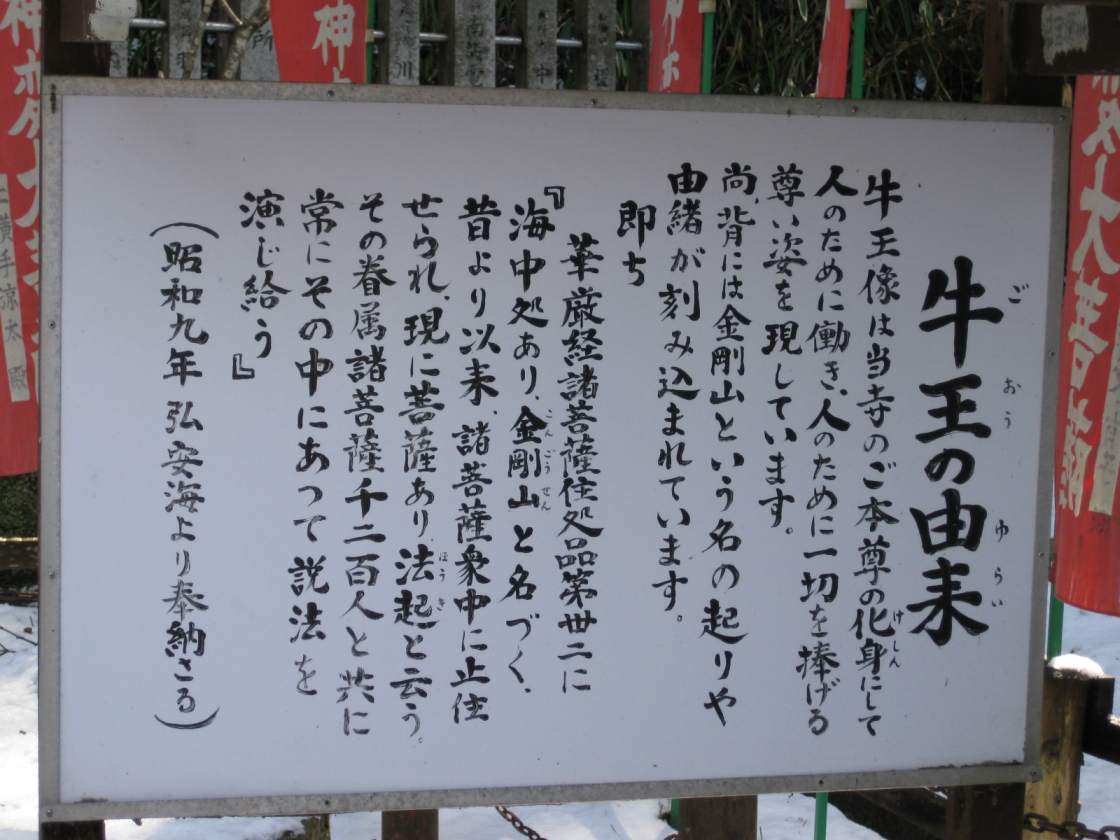 牛王の由来
ごおうゆらい
牛王像は当寺のご本尊の化身にして
けしん
人のために働き、人のために一切を捧げる
尊い姿を現しています。
尚、背には金剛山という名の起りや
由緒が刻み込まれています。
即ち
華厳経諸菩薩住処品第丗二に
『海中処あり、金剛山と名づく、
こんごうせん
昔より以来、諸菩薩衆中に止住
せられ、現に菩薩あり、法起と云う。
ほうき
その眷属諸菩薩千二百人と共に
常にその中にあって説法を
演じ給う』
(昭和九年 弘安海より奉納さる)